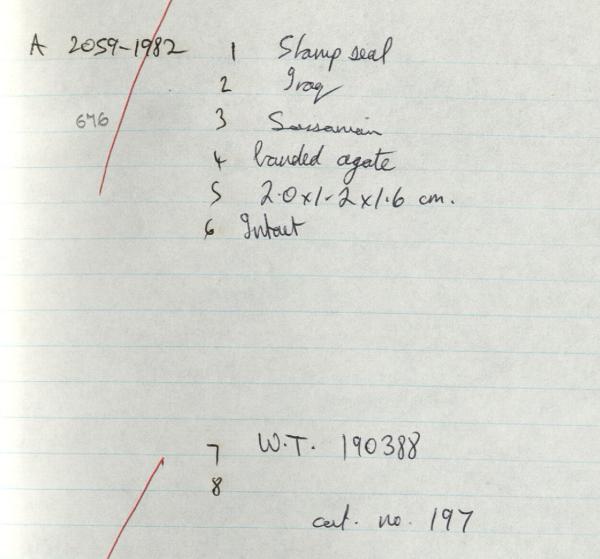 A 2059-1982 1 Stamp seal
2 Iraq
676 3 Sassanian
4 banded agate
5 2.0x1.2x1.6 cm.
6 Intact
7 W.T. 190388
8
cat. no. 197